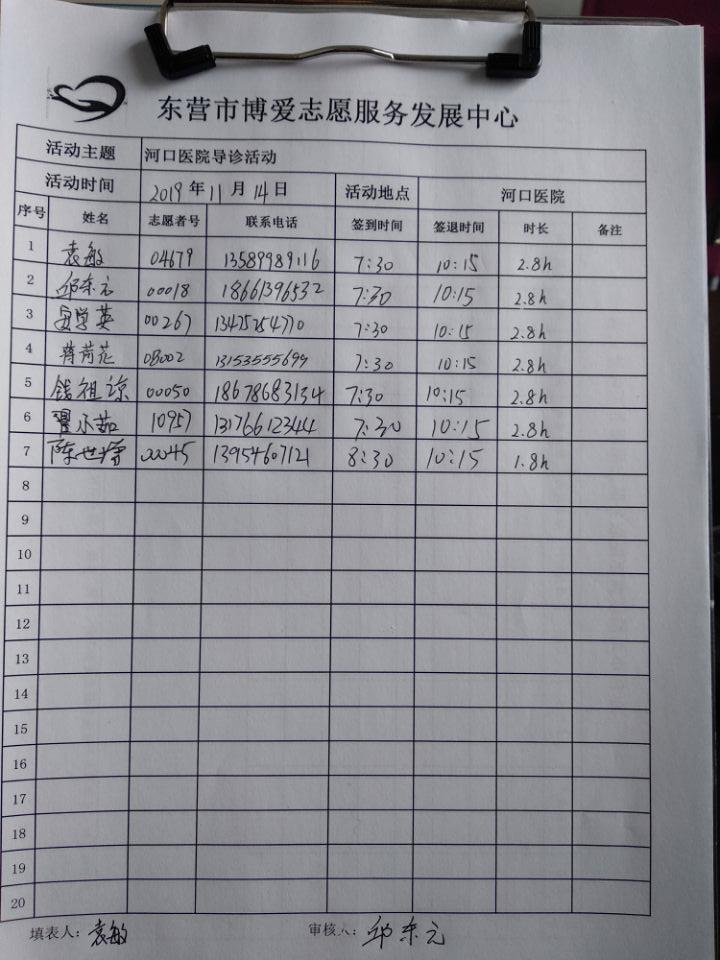 东营市博爱志愿服务发展中心
活动主题 河口医院导诊活动
活动时间 2019年11月14日 活动地点 河口医院
序号 姓名 志愿者号 联系电话 签到时间 签退时间 时长 备注
1 袁敏 04679 13589989116 7:30 10:15 2.8h
2 邱东元 00018 18661396532 7:30 10:15 2.8h
3 安学英 00267 13475254770 7:30 10:15 2.8h
4 08002 13153555699 7:30 10:15 2.8h
5 钱祖谅 00050 18678683134 7:30 10:15 2.8h
6 翟小茹 10957 13176612344 7:30 10:15 2.8h
7 陈世 00045 13954607121 8:30 10:15 1.8h
8
9
10
11
12
13
14
15
16
17
18
19
20
填表人:袁敏 审核人:邱东元